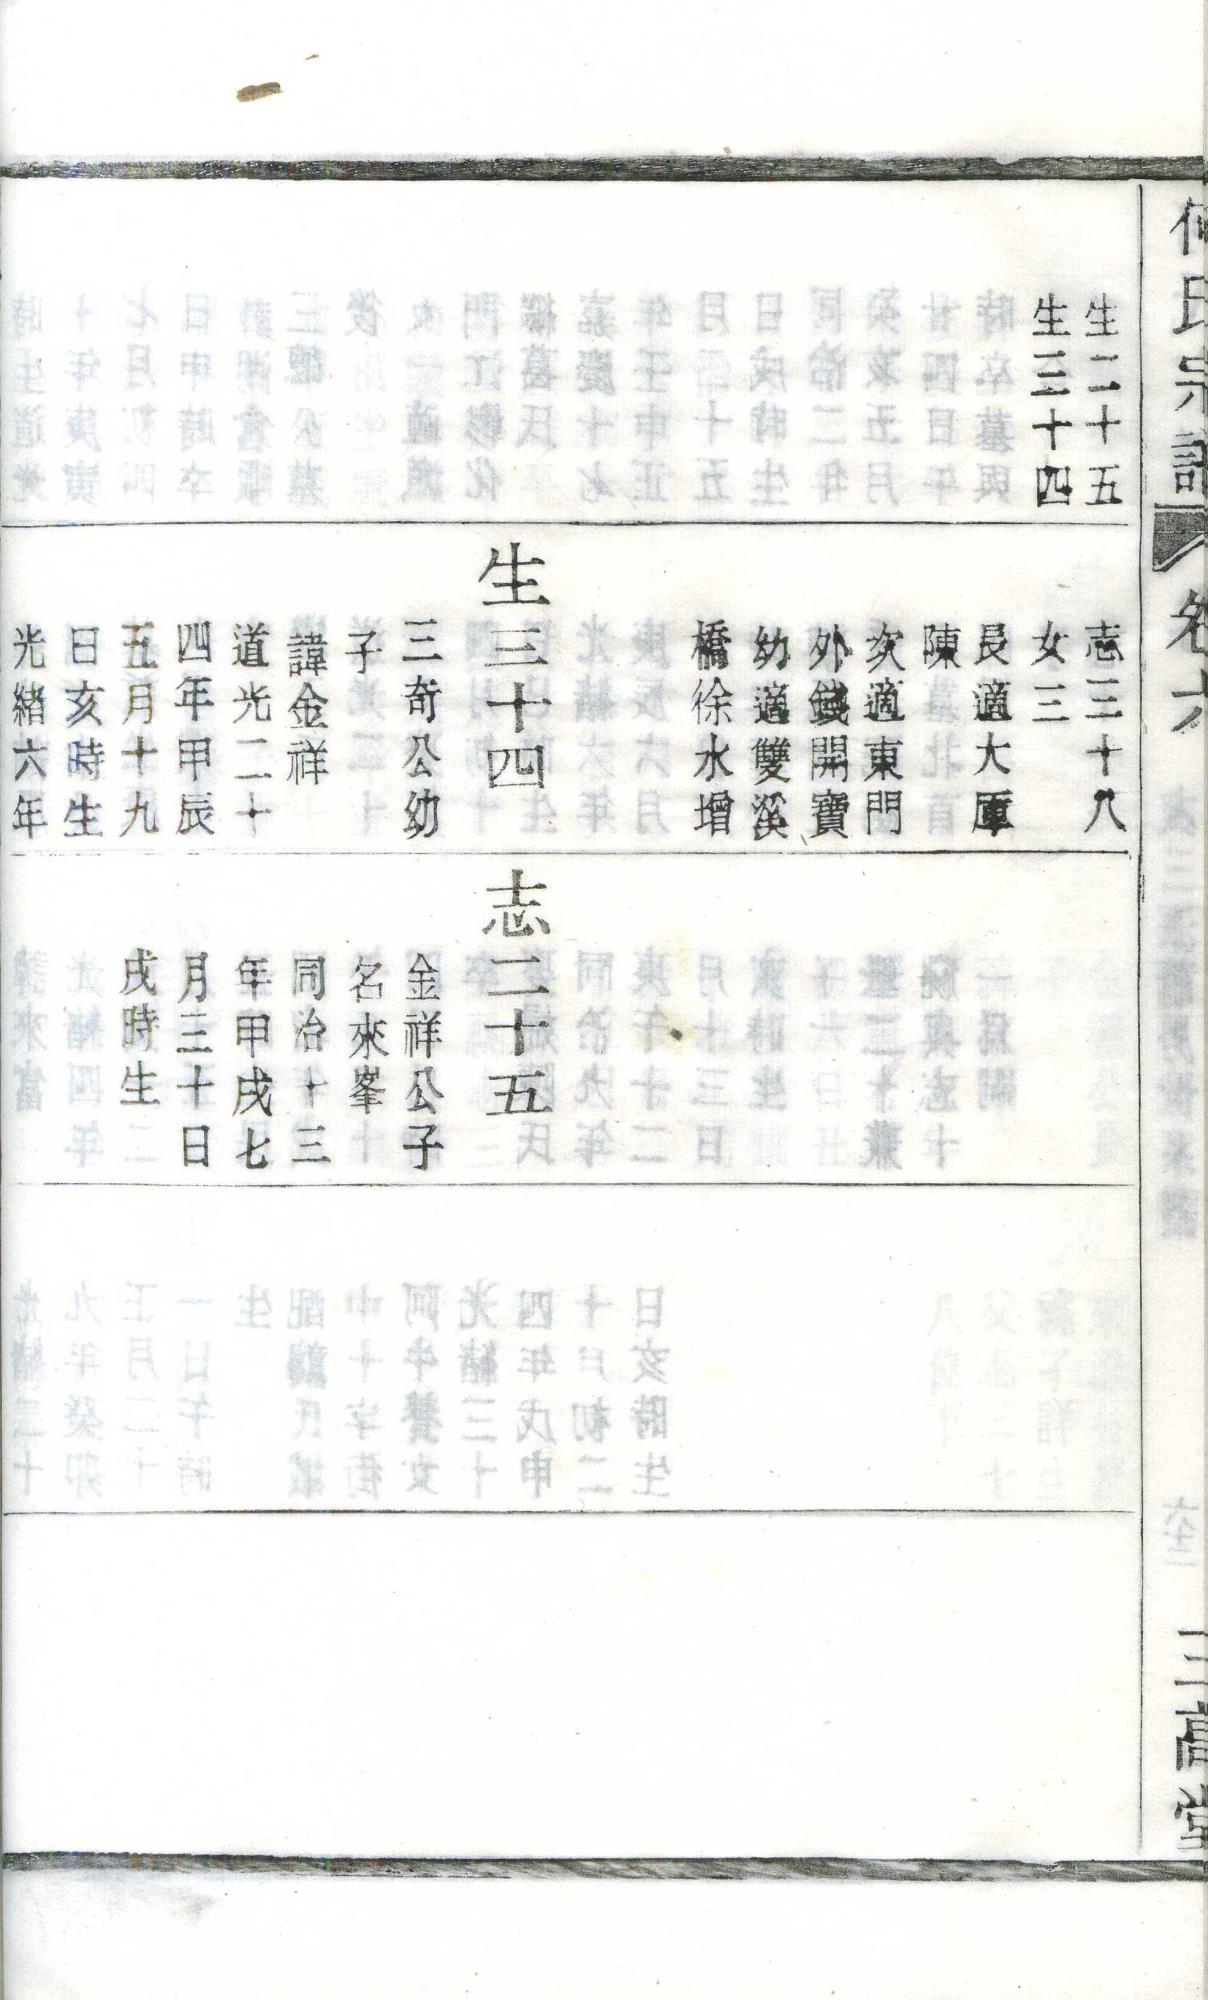 何氏宗譜
卷六
三高堂
生二十五
生三十四
志三十八
女三
長適大厙
陳
次適東門
外錢開寶
幼適雙溪
橋徐水增
生三十四
三奇公幼
子
諱金祥
道光二十
四年甲辰
五月十九
日亥時生
光緒六年
志二十五
金祥公子
名來峯
同治十三
年甲戌七
月三十日
戌時生